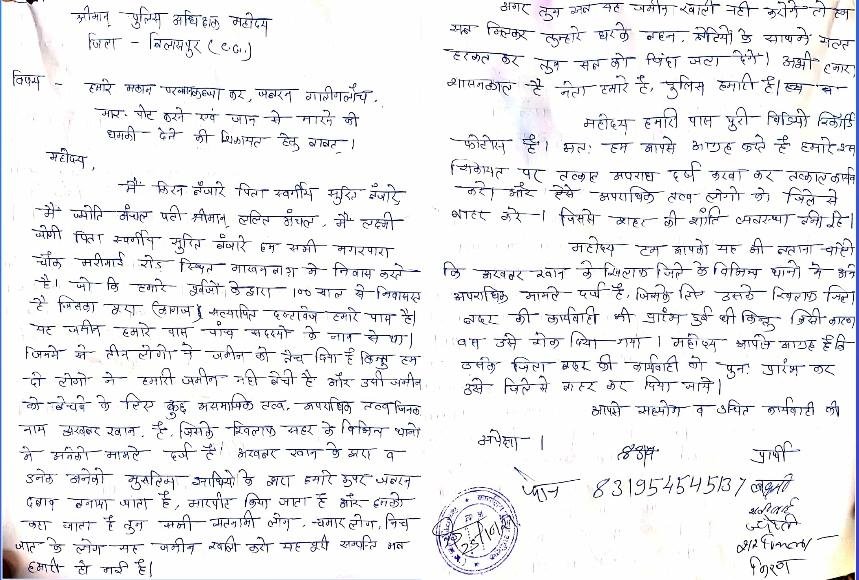 श्रीमान् पुलिस अधिक्षक महोदय
जिला - बिलासपुर (C.G.)
विषय - हमारे मकान पर कर, जबरन गालीगलौच,
मार-पीट करने एवं जान से मारने की
धमकी देने की शिकायत हेतु बाबत्।
महोदय,
मैं किरन बंजारे पिता स्वर्गीय सुरित बंजारे,
मैं ज्योति अंचल पती श्रीमान् ललित अंचल, मैं लक्ष्मी
जोगी पिता स्वर्गीय सुरित बंजारे हम सभी मगरपारा
चौक मरीमाई रोड स्थित में निवास करते
है। जो कि हमारे पूर्वजों के द्वारा 100 साल से निवासरत
है जिसका सत्यापित दस्तावेज हमारे पास है।
यह जमीन हमारे पास पांच सदस्यों के नाम से था।
जिनमें से तीन लोगों ने जमीन को बेच दिया है किन्तु हम
दो लोगों ने हमारी जमीन नहीं बेची है और उसी जमीन
को बेचने के लिए कुछ असमाजिक तत्व, अपराधिक तत्व जिनका
नाम अकबर खान, है, जिसके खिलाफ शहर के विभिन्न थानों
में अनेकों मामले दर्ज है। अकबर खान के द्वारा व
उनके अनेकों मुसलिम साथियों के द्वारा हमारे ऊपर जबरन
दबाव बनाया जाता है, मारपीट किया जाता है और हमको
कहा जाता है तुम सभी सतनामी लोग, चमार लोग, निच
जात के लोग यह जमीन खाली करो यह पूरी सम्पत्ति अब
हमारी हो गई है।
अगर तुम सब यह जमीन खाली नहीं करोगे तो हम
सब मिलकर तुम्हारे घरके बहन, बेटियों के साथमें गलत
हरकत कर तुम सब को जिंदा जला देंगे। अभी हमारा
शासनकाल है नेता हमारे है, पुलिस हमारी है। हम व
महोदय हमारी पास पुरी विडियो रिकॉर्डिंग
फोटोस है। अतः हम आपसे आग्रह करते है हमारे इस
शिकायत पर तत्काल अपराध दर्ज करवा कर तत्काल कार्य
करे। और ऐसे अपराधिक तत्व लोगों को जिले से
बाहर करे। जिससे शहर की शांति व्यवस्था बनी रहे।
महोदय हम आपको यह भी बताना चाहेंगे
कि अकबर खान के खिलाफ जिले के विभिन्न थानों में अने
अपराधिक मामले दर्ज है, जिसके लिए उसके खिलाफ जिला
बदर की कार्यवाही भी प्रारंभ हुई थी किन्तु किसी कारण
वस उसे रोक दिया गया। महोदय आपसे आग्रह है कि
उसके जिला बदर की कार्यवाही को पुनः प्रारंभ कर
उसे जिले से बाहर कर दिया जाये।
आपसे सहयोग व उचित कार्यवाही की
अपेक्षा।
प्रार्थी
फोन 831954545137 लक्ष्मी
ज्योती
किरण